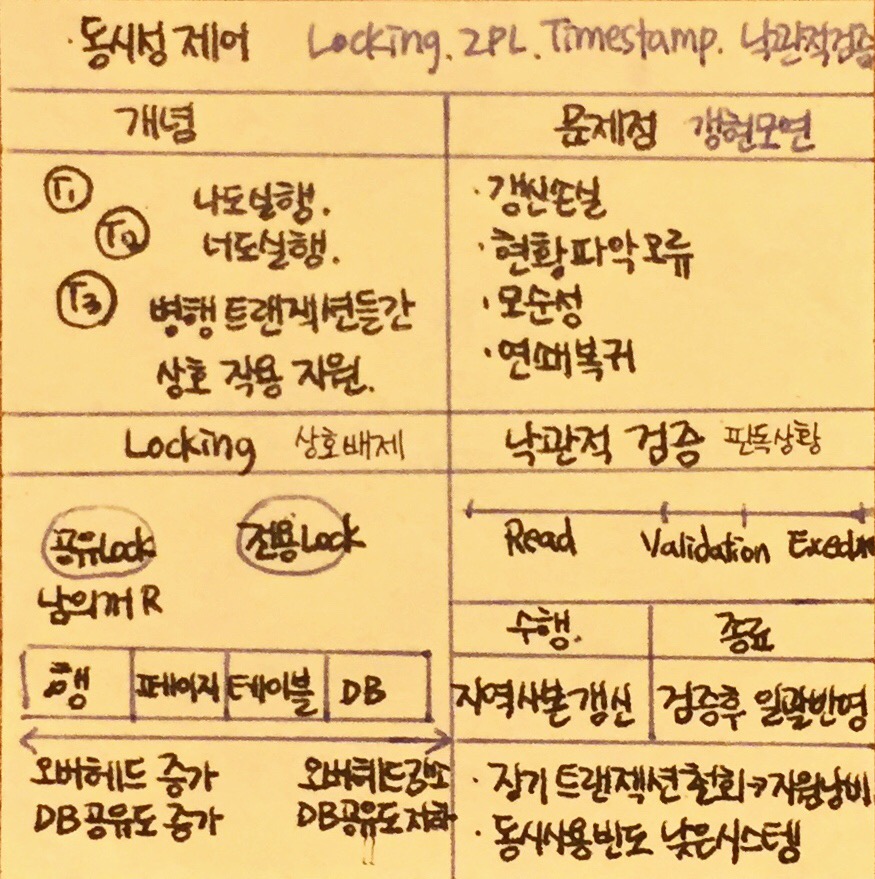 ·동시성 제어 Locking. 2PL. Timestamp. 낙관적검증
개념
문제점 갱현모연
T1 나도실행.
T2 너도실행.
T3 병행 트랜잭션들간
상호 작용 지원.
·갱신손실
·현황파악오류
·모순성
·연쇄복귀
Locking 상호배제
낙관적 검증 판독상황
공유Lock 전용Lock
남의꺼 R
행 페이지 테이블 DB
오버헤드 증가 오버헤드감소
DB공유도 증가 DB공유도저하
Read Validation
수행. 종료
지역사본갱신 검증후 일괄반영
·장기트랜잭션철회→자원낭비
·동시사용빈도 낮은시스템